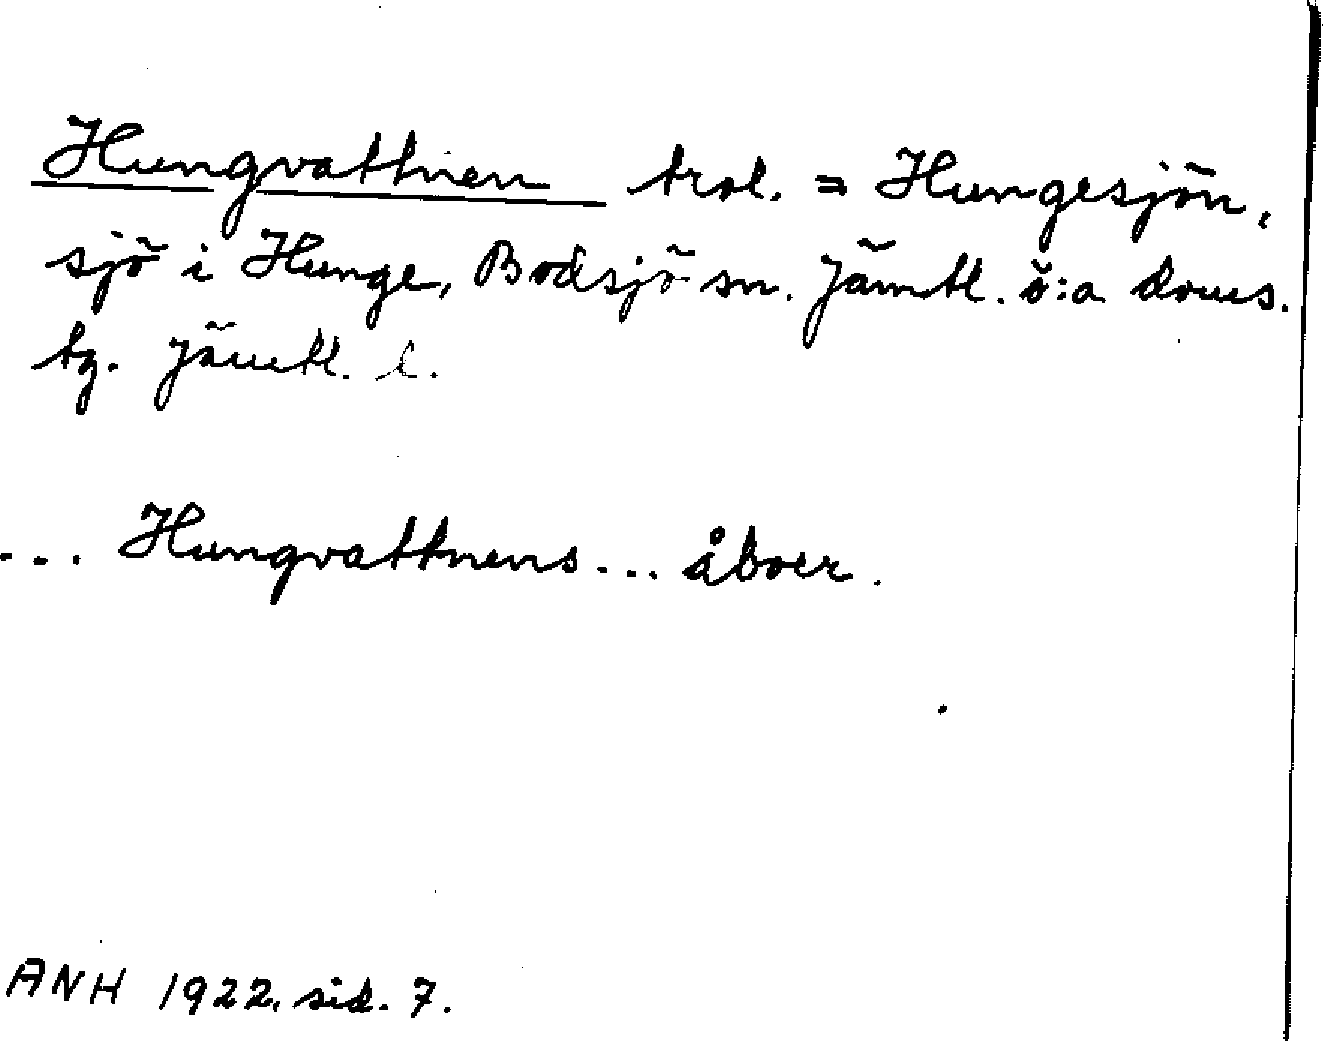 Hungvattnen trol. = Hungesjön,
sjö i Hunge, Bodsjö sn. Jämtl. ö:a doms.
tg. Jämtl. l.
... Hungvattnens... åboer.
ANH 1922, sid. 7.